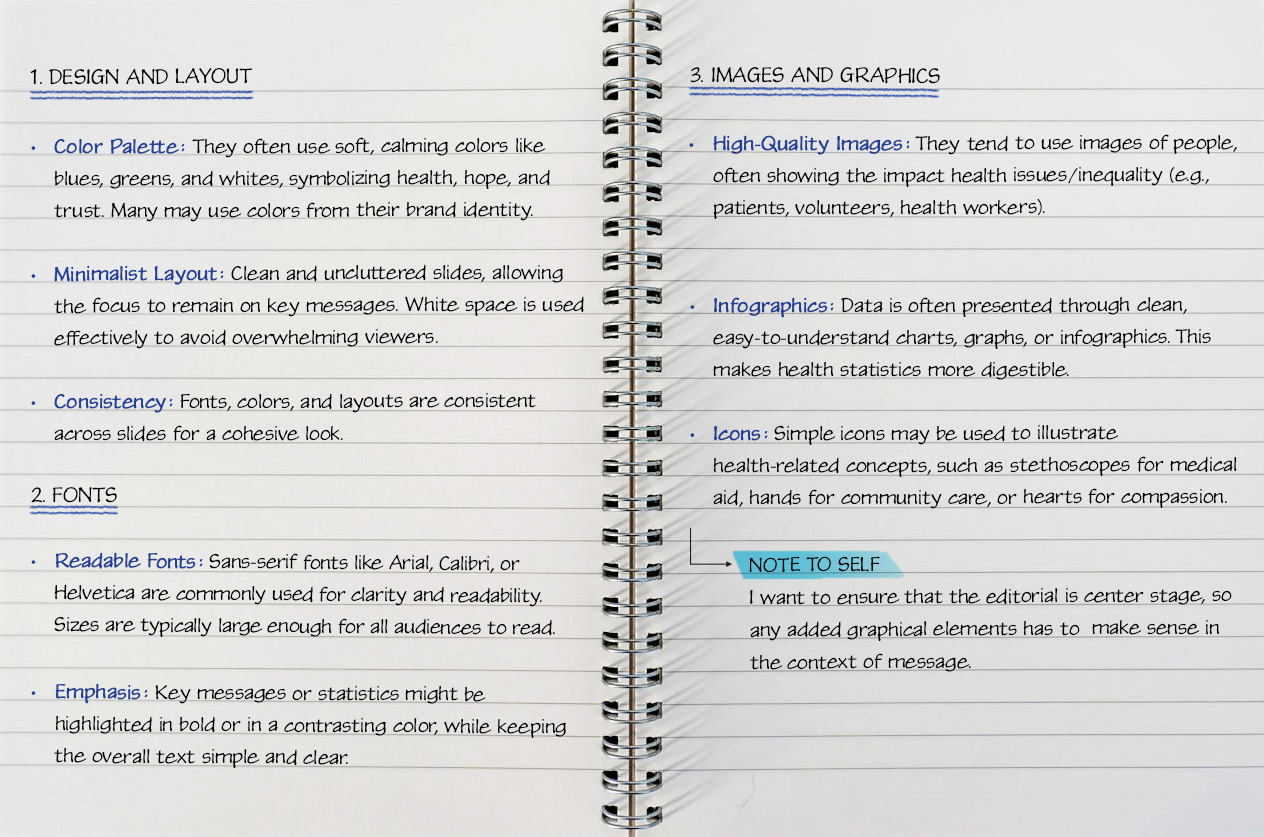 1. DESIGN AND LAYOUT
• Color Palette: They often use soft, calming colors like
blues, greens, and whites, symbolizing health, hope, and
trust. Many may use colors from their brand identity.
• Minimalist Layout: Clean and uncluttered slides, allowing
the focus to remain on key messages. White space is used
effectively to avoid overwhelming viewers.
• Consistency: Fonts, colors, and layouts are consistent
across slides for a cohesive look.
2. FONTS
• Readable Fonts: Sans-serif fonts like Arial, Calibri, or
Helvetica are commonly used for clarity and readability.
Sizes are typically large enough for all audiences to read.
• Emphasis: Key messages or statistics might be
highlighted in bold or in a contrasting color, while keeping
the overall text simple and clear.
3. IMAGES AND GRAPHICS
• High-Quality Images: They tend to use images of people,
often showing the impact health issues/inequality (e.g.,
patients, volunteers, health workers).
• Infographics: Data is often presented through clean,
easy-to-understand charts, graphs, or infographics. This
makes health statistics more digestible.
• Icons: Simple icons may be used to illustrate
health-related concepts, such as stethoscopes for medical
aid, hands for community care, or hearts for compassion.
NOTE TO SELF
I want to ensure that the editorial is center stage, so
any added graphical elements has to make sense in
the context of message.